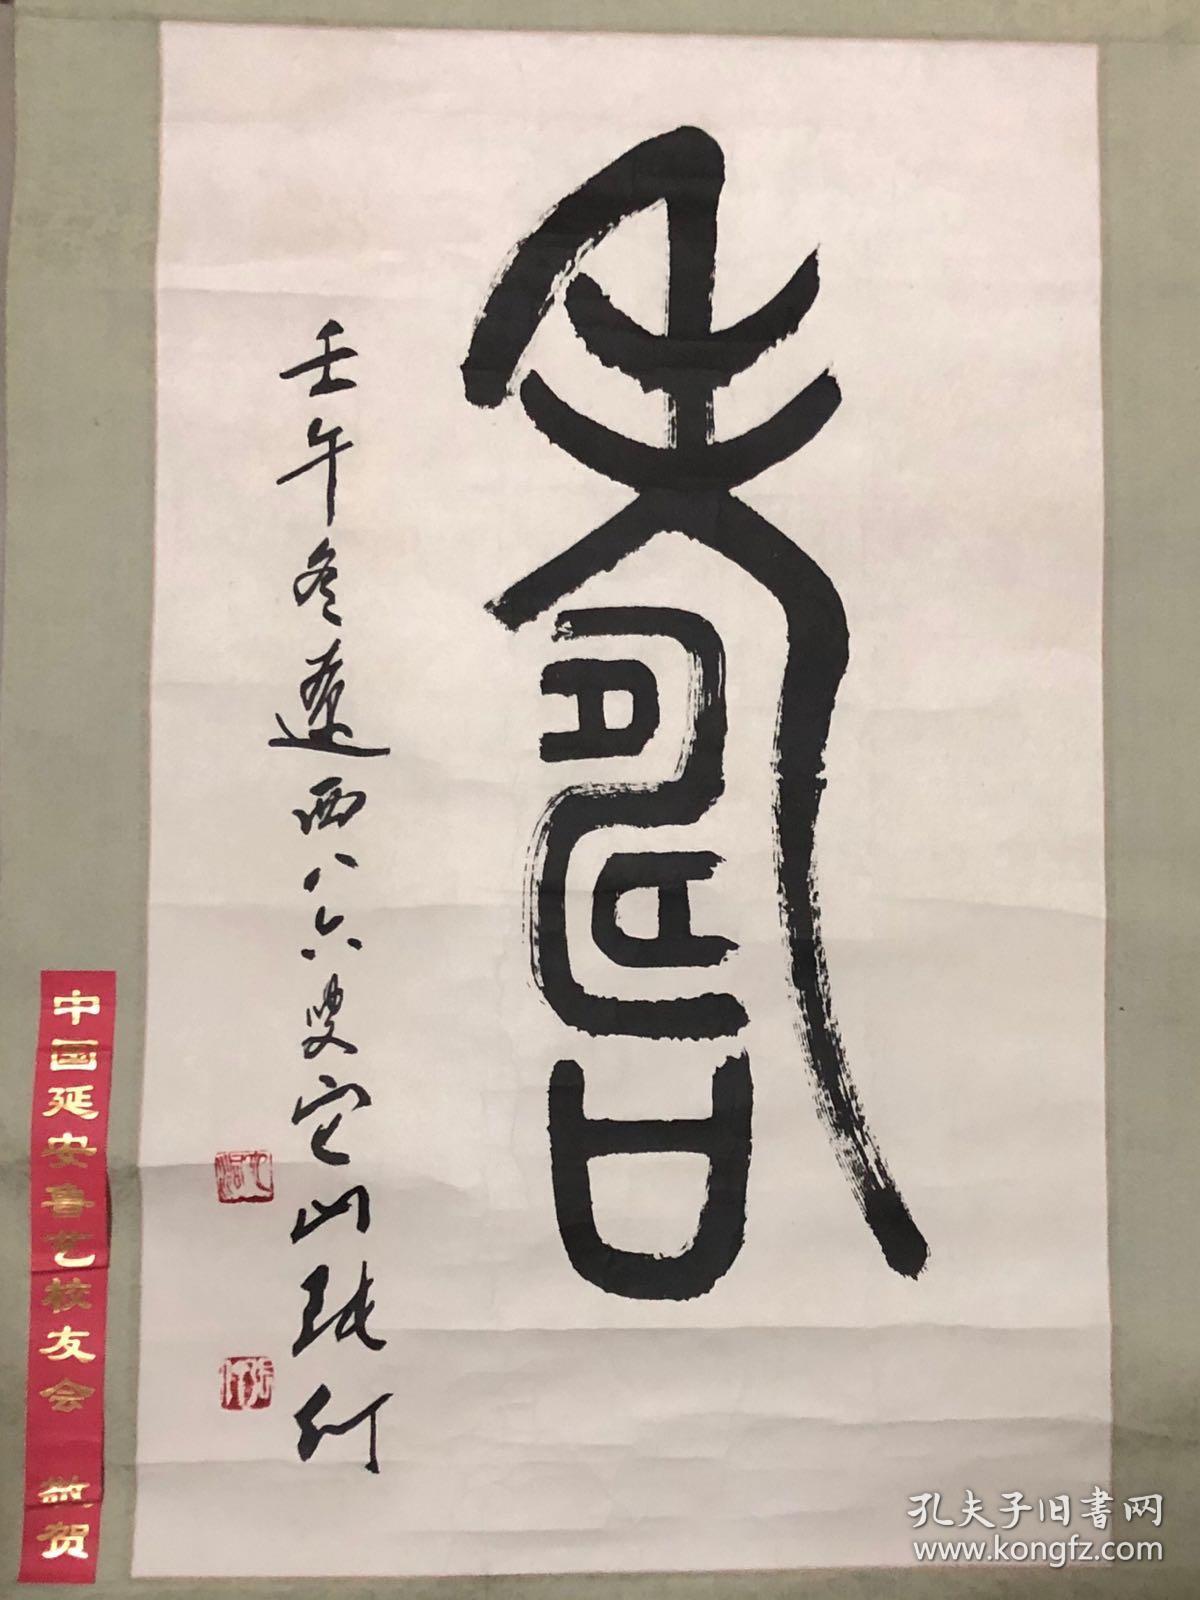 壽
壬午冬遼西八六叟它山張仃
中国延安鲁艺校友会 敬贺
孔夫子旧书网
www.kongfz.com